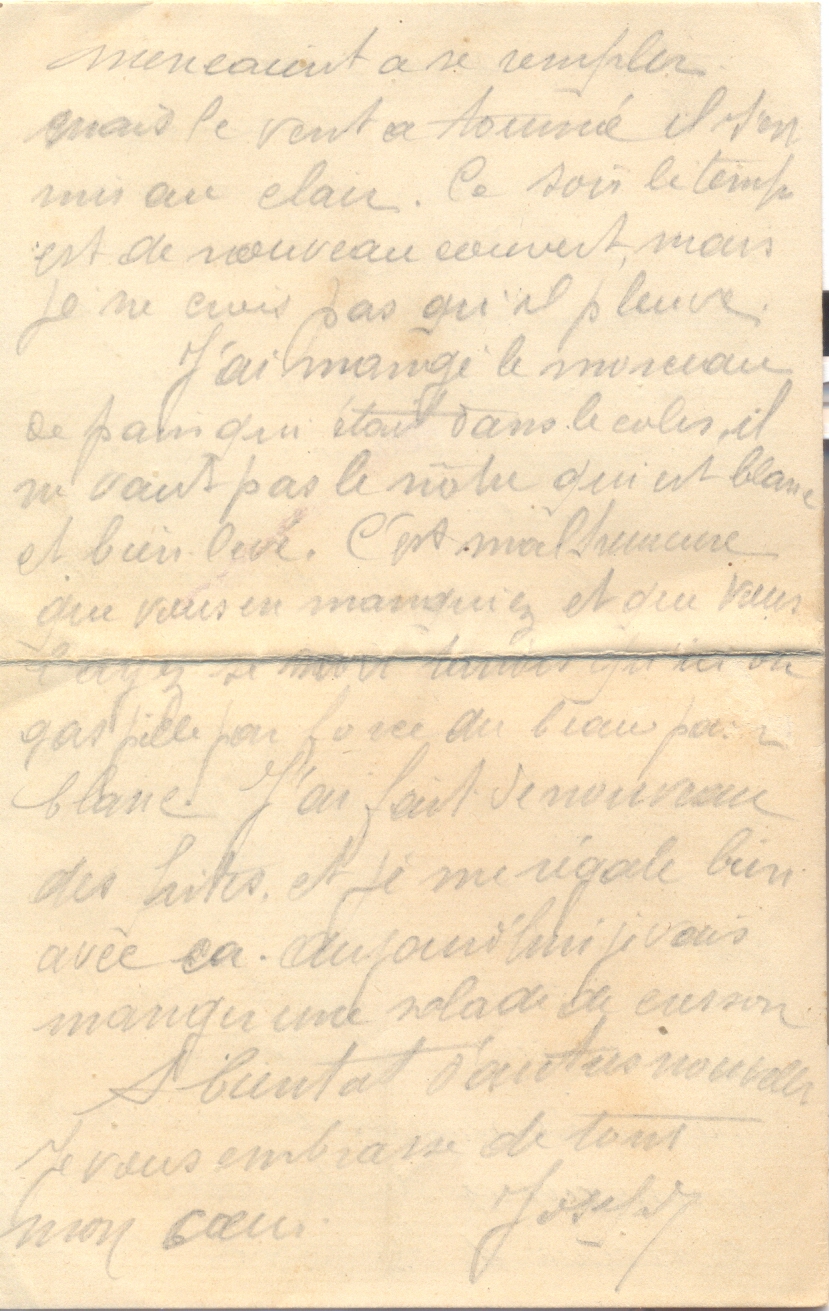 mencaient a se rempler
mais le vent a tourné il s'en
mis au clair. Ce soir le temp
est de nouveau couvert, mais
je ne crois pas qu'il pleuve.
J'ai mangé le morceau
de pain qui était dans le colis, il
ne vaut pas le nôtre qui est blanc
et bien levé. C'est malheureux
que vous en manquiez et que vous
l'ayez si noir tandis qu'ici on
gaspille par force du beau pain
blanc. J'ai fait de nouveau
des frites. et je me régale bien
avec ça. Aujourd'hui je vais
manger une salade de cresson
A bientat d'autres nouvelles
Je vous embrasse de tout
mon cœur. Joseph